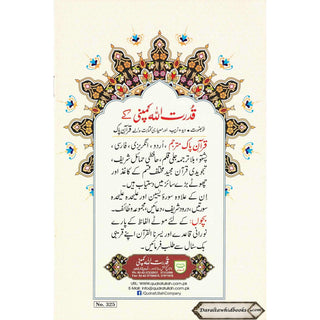 قدرت اللہ کمپنی کے
خوبصورت، دیدہ زیب اور معیاری کتابت والے قرآن پاک
قرآن پاک مترجم، اُردو، انگریزی، فارسی،
پشتو، بلا ترجمہ جلی قلم، حافظی حمائل شریف،
تجویدی قرآن مجید مختلف قسم کے کاغذ اور
چھوٹے بڑے سائز میں دستیاب ہیں۔
اِن کے علاوہ سورۃ یٰسین اور علیحدہ علیحدہ
سورتیں، درود شریف، دعائیں، مجموعہ وظائف۔
بچوں کے لئے موٹے الفاظ کے بڑے
نورانی قاعدے اور یسرنا القرآن اپنے قریبی
بک سٹال سے طلب فرمائیں۔
قدرت اللہ کمپنی
URL: www.qudratullah.com.pk
E-Mail: info@qudratullah.com.pk
QudratullahCompany
No. 325
Darultawhidbooks.com